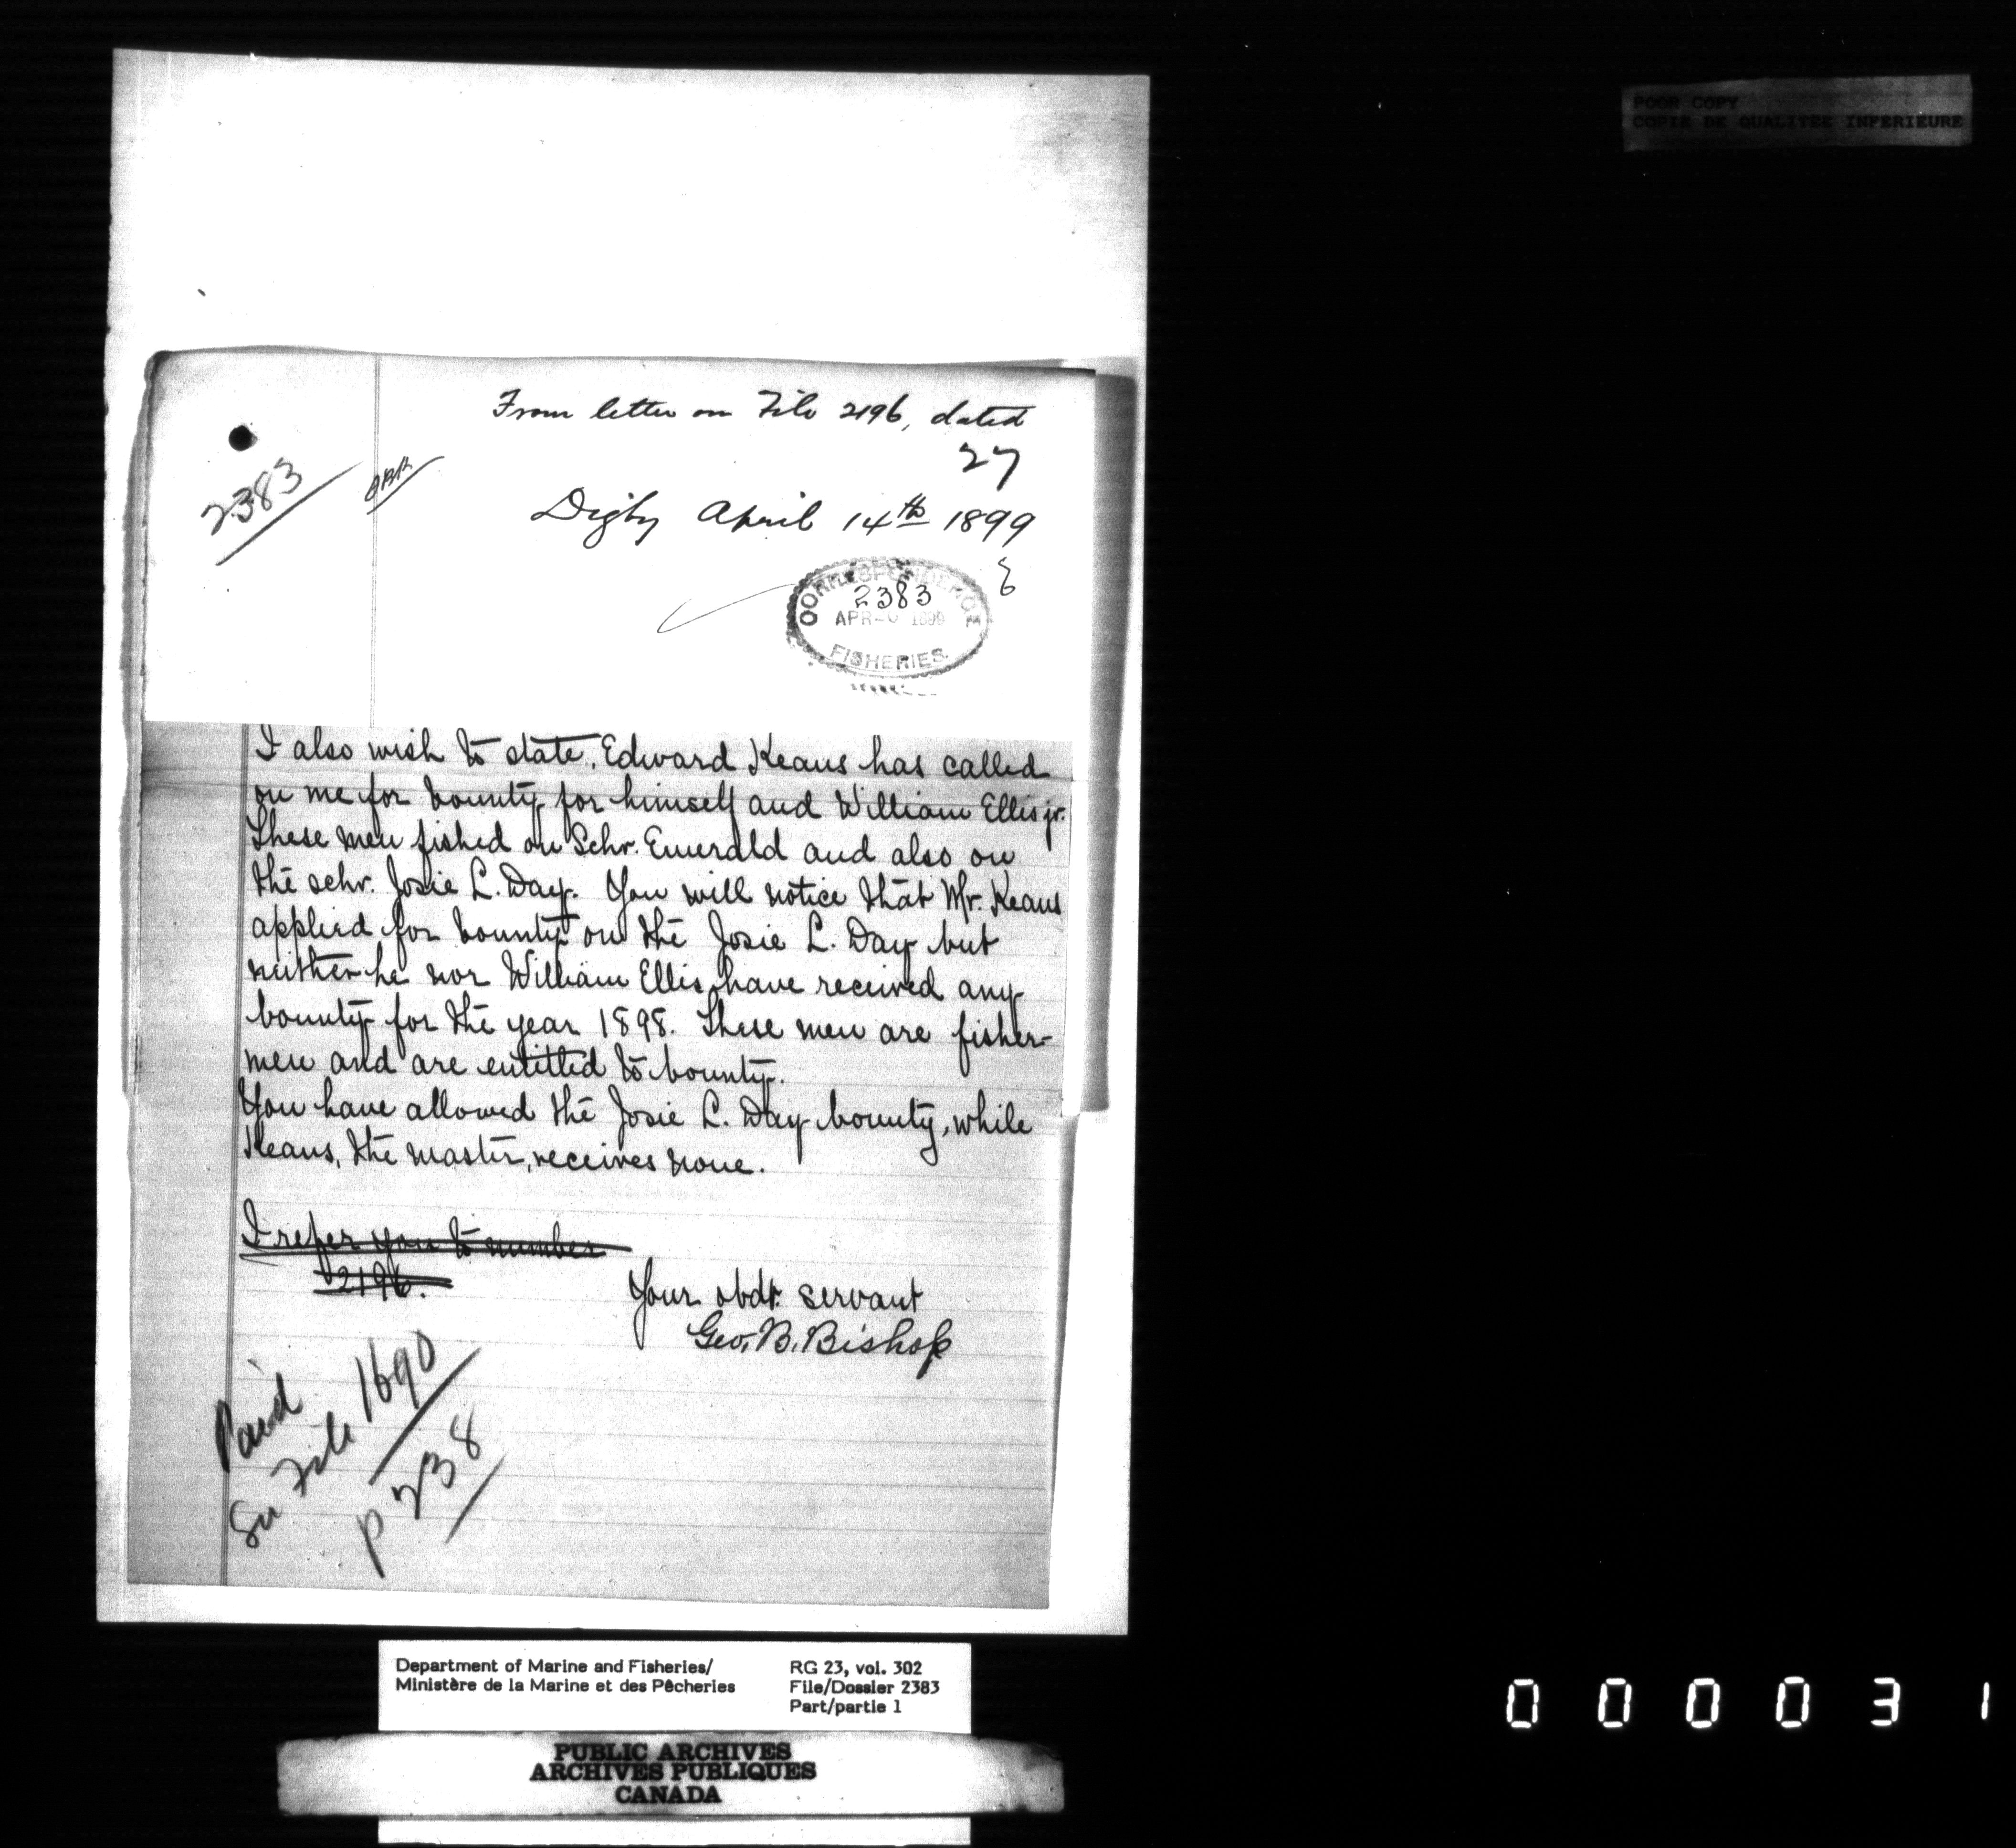 POOR COPY
COPIE DE QUALITEE INFERIEURE
From letter on File 2196, dated
27
2383
Digby April 14th 1899
CORRESPONDENCE
2383
APR 1899
FISHERIES
I also wish to state, Edward Keans has called
on me for bounty for himself and William Ellis jr.
These men fished on Schr. Emerald and also on
the schr. Josie L. Day. You will notice that Mr. Keans
applied for bounty on the Josie L. Day but
neither he nor William Ellis have received any
bounty for the year 1898. These men are fisher-
men and are entitled to bounty.
You have allowed the Josie L. Day bounty, while
Keans, the master, receives none.
I refer you to number
2196.
Your obdt. servant
Geo. B. Bishop
Paid
See File 1690
p 238
Department of Marine and Fisheries/
Ministère de la Marine et des Pêcheries
RG 23, vol. 302
File/Dossier 2383
Part/partie 1
PUBLIC ARCHIVES
ARCHIVES PUBLIQUES
CANADA
000031